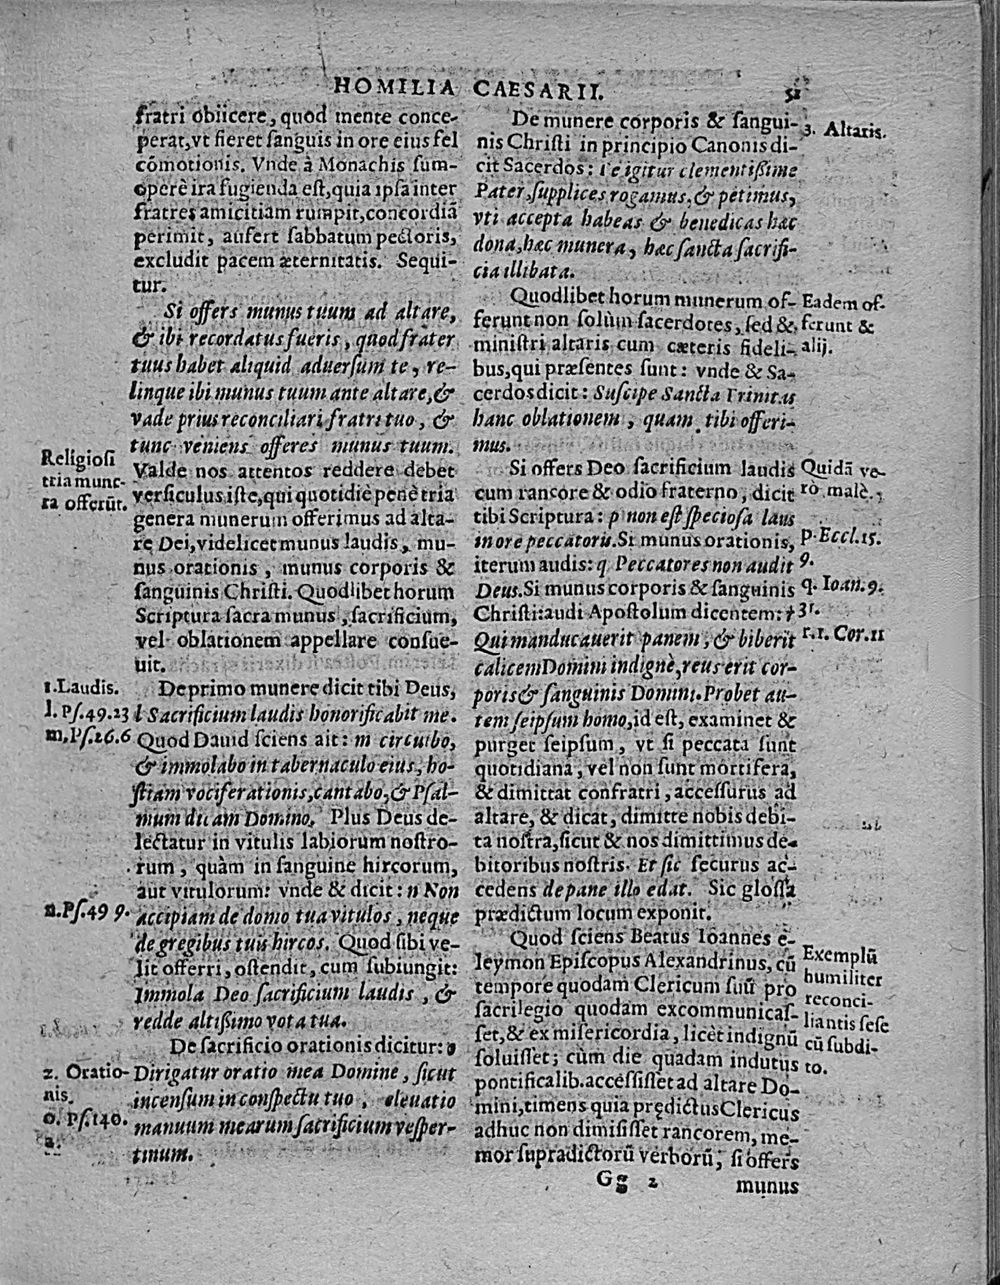 HOMILIA CAESARII.
51
fratri obiicere, quod mente conce-
perat, vt fieret sanguis in ore eius fel
cōmotionis. Vnde à Monachis sum-
operè ira fugienda est, quia ipsa inter
fratres amicitiam rumpit, concordiā
perimit, aufert sabbatum pectoris,
excludit pacem æternitatis. Sequi-
tur.
Si offers munus tuum ad altare,
& ibi recordatus fueris, quod frater
tuus habet aliquid aduersum te, re-
linque ibi munus tuum ante altare, &
vade prius reconciliari fratri tuo, &
tunc veniens offeres munus tuum.
Religiosi
tria mune-
ra offerūt.
Valde nos attentos reddere debet
versiculus iste, qui quotidiè penè tria
genera munerum offerimus ad alta-
re Dei, videlicet munus laudis, mu-
nus orationis, munus corporis &
sanguinis Christi. Quodlibet horum
Scriptura sacra munus, sacrificium,
vel oblationem appellare consue-
uit.
1. Laudis.
l. Ps. 49. 23
m. Ps. 26. 6
De primo munere dicit tibi Deus,
l Sacrificium laudis honorificabit me.
Quod Dauid sciens ait: m circuibo,
& immolabo in tabernaculo eius, ho-
stiam vociferationis, cantabo, & Psal-
mum dicam Domino. Plus Deus de-
lectatur in vitulis labiorum nostro-
rum, quàm in sanguine hircorum,
aut vitulorum: vnde & dicit: n Non
n. Ps. 49 9.
accipiam de domo tua vitulos, neque
de gregibus tuis hircos. Quod sibi ve-
lit offerri, ostendit, cum subiungit:
Immola Deo sacrificium laudis, &
redde altißimo vota tua.
De sacrificio orationis dicitur: o
2. Oratio-
nis.
o. Ps. 140.
2.
Dirigatur oratio mea Domine, sicut
incensum in conspectu tuo, eleuatio
manuum mearum sacrificium vesper-
tinum.
De munere corporis & sangui-
3. Altaris.
nis Christi in principio Canonis di-
cit Sacerdos: Te igitur clementißime
Pater, supplices rogamus, & petimus,
vti accepta habeas & benedicas hæc
dona, hæc munera, hæc sancta sacrifi-
cia illibata.
Quodlibet horum munerum of-
Eadem of-
ferunt &
alij.
ferunt non solùm sacerdotes, sed &
ministri altaris cum cæteris fideli-
bus, qui præsentes sunt: vnde & Sa-
cerdos dicit: Suscipe Sancta Trinitas
hanc oblationem, quam tibi offeri-
mus.
Si offers Deo sacrificium laudis
Quidā ve-
rò malè.
cum rancore & odio fraterno, dicit
tibi Scriptura: p non est speciosa laus
in ore peccatoris. Si munus orationis,
p. Eccl. 15.
9.
iterum audis: q Peccatores non audit
Deus. Si munus corporis & sanguinis
q. Ioan. 9.
31.
Christi: audi Apostolum dicentem: r
Qui manducauerit panem, & biberit
r. 1. Cor. 11
calicem Domini indignè, reus erit cor-
poris & sanguinis Domini. Probet au-
tem seipsum homo, id est, examinet &
purget seipsum, vt si peccata sunt
quotidiana, vel non sunt mortifera,
& dimittat confratri, accessurus ad
altare, & dicat, dimitte nobis debi-
ta nostra, sicut & nos dimittimus de-
bitoribus nostris. Et sic securus ac-
cedens de pane illo edat. Sic glossa
prædictum locum exponit.
Quod sciens Beatus Ioannes e-
leymon Episcopus Alexandrinus, cū
Exemplū
humiliter
reconci-
liantis sese
cū subdi-
to.
tempore quodam Clericum suū pro
sacrilegio quodam excommunicas-
set, & ex misericordia, licèt indignū
soluisset; cùm die quadam indutus
pontificalib. accessisset ad altare Do-
mini, timens quia prędictus Clericus
adhuc non dimisisset rancorem, me-
mor supradictorū verborū, si offers
Gg 2
munus